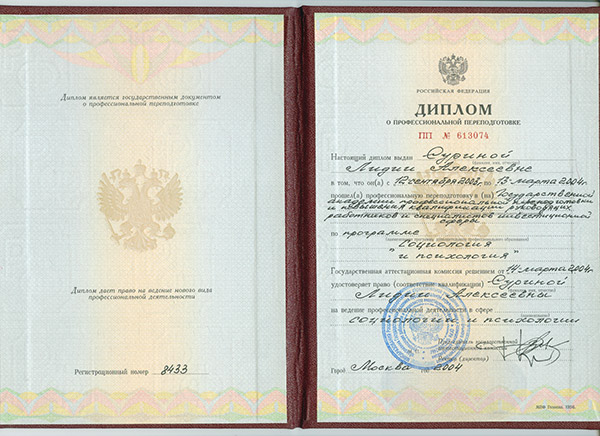 Диплом является государственным документом
о профессиональной переподготовке
Диплом дает право на ведение нового вида
профессиональной деятельности
Регистрационный номер 8433
РОССИЙСКАЯ ФЕДЕРАЦИЯ
ДИПЛОМ
О ПРОФЕССИОНАЛЬНОЙ ПЕРЕПОДГОТОВКЕ
ПП № 613074
Настоящий диплом выдан Суриной
(фамилия, имя, отчество)
Лидии Алексеевне
в том, что он(а) с 12 сентября 2003 г. по 13 марта 2004 г.
прошел(а) профессиональную переподготовку в (на) Государственной
академии профессиональной переподготовки
и повышения квалификации руководящих
работников и специалистов инвестиционной
сферы
по программе
"Социология
и психология"
Государственная аттестационная комиссия решением от 14 марта 2004 г.
удостоверяет право (соответствие квалификации) Суриной
(фамилия, имя, отчество)
Лидии Алексеевны
на ведение профессиональной деятельности в сфере
социологии и психологии
Председатель государственной
аттестационной комиссии
Ректор (директор)
Город Москва год 2004